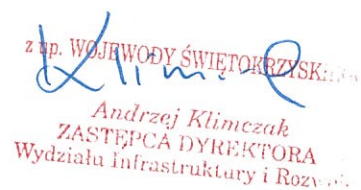 z up. WOJEWODY ŚWIĘTOKRZYSK
Klim
Andrzej Klimczak
ZASTĘPCA DYREKTORA
Wydziału Infrastruktury i Rozw